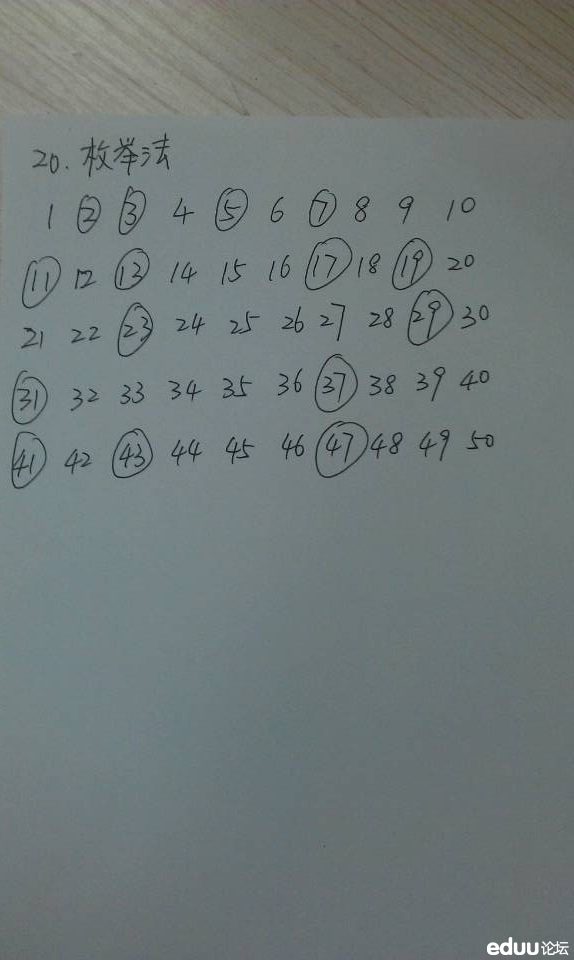 20. 枚举法
1 2 3 4 5 6 7 8 9 10
11 12 13 14 15 16 17 18 19 20
21 22 23 24 25 26 27 28 29 30
31 32 33 34 35 36 37 38 39 40
41 42 43 44 45 46 47 48 49 50
eduu论坛